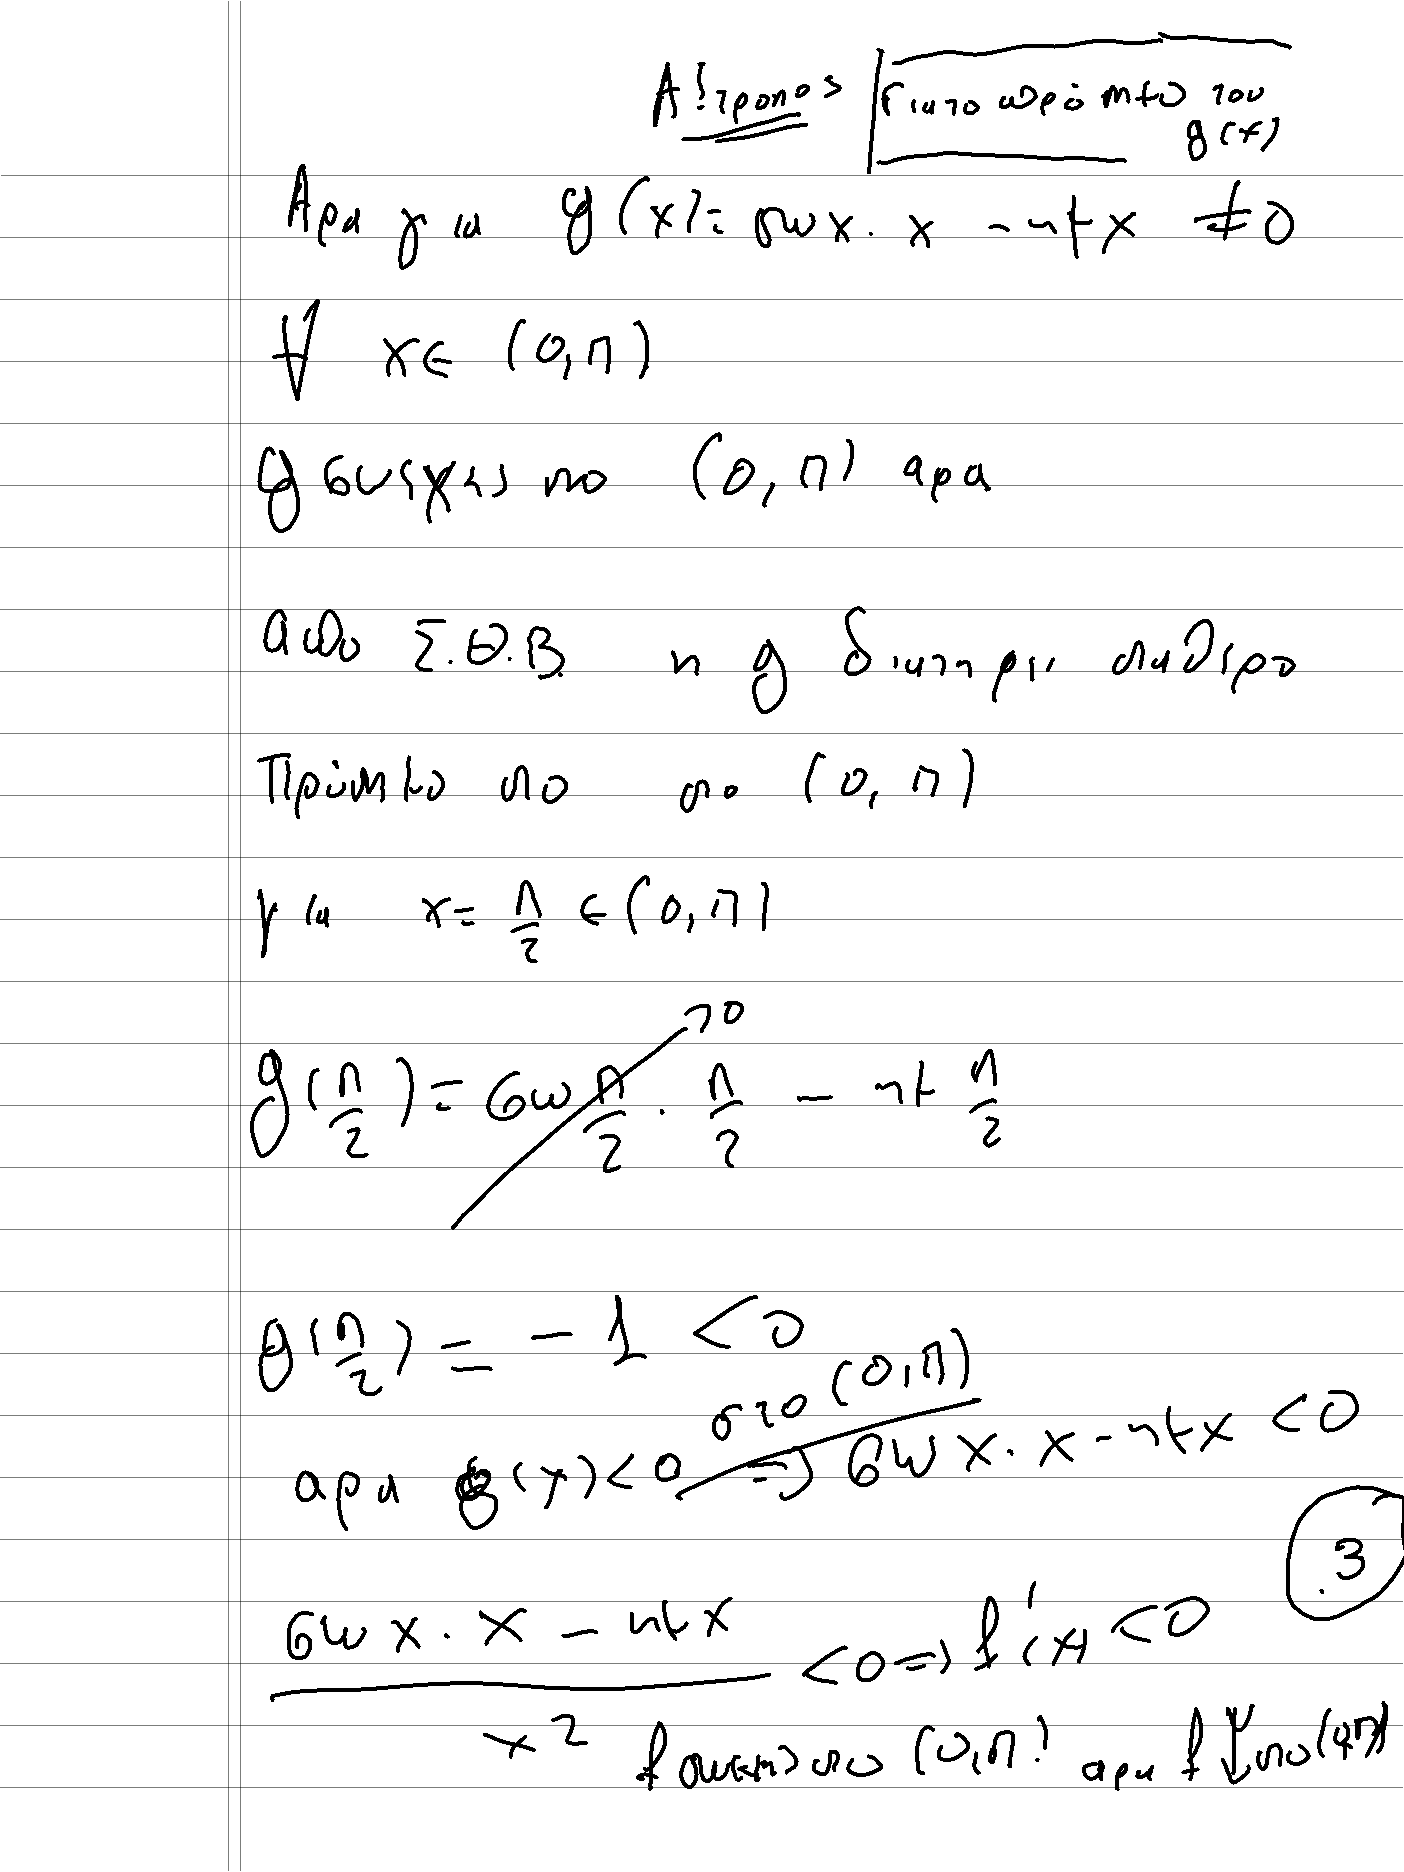 Α! τροπος
Για το πρόσημο του
g(x)
Αρα για g(x)= συνx. x - ημx ≠0
∀ x∈ (0,π)
g συνεχης στο (0,π) αρα
απο Σ.Θ.Β. η g διατηρει σταθερο
Πρόσημο στο στο (0,π)
για x= π/2 ∈(0,π)
g(π/2)= συν π/2 . π/2 - ημ π/2
→0
g(π/2) = -1 <0
αρα g(x)<0 στο (0,π) => συνx. x-ημx <0
3
(συνx. x - ημx)/x² <0 => f'(x) <0
f συνεχης στο (0,π) αρα f ↓ στο (0,π)